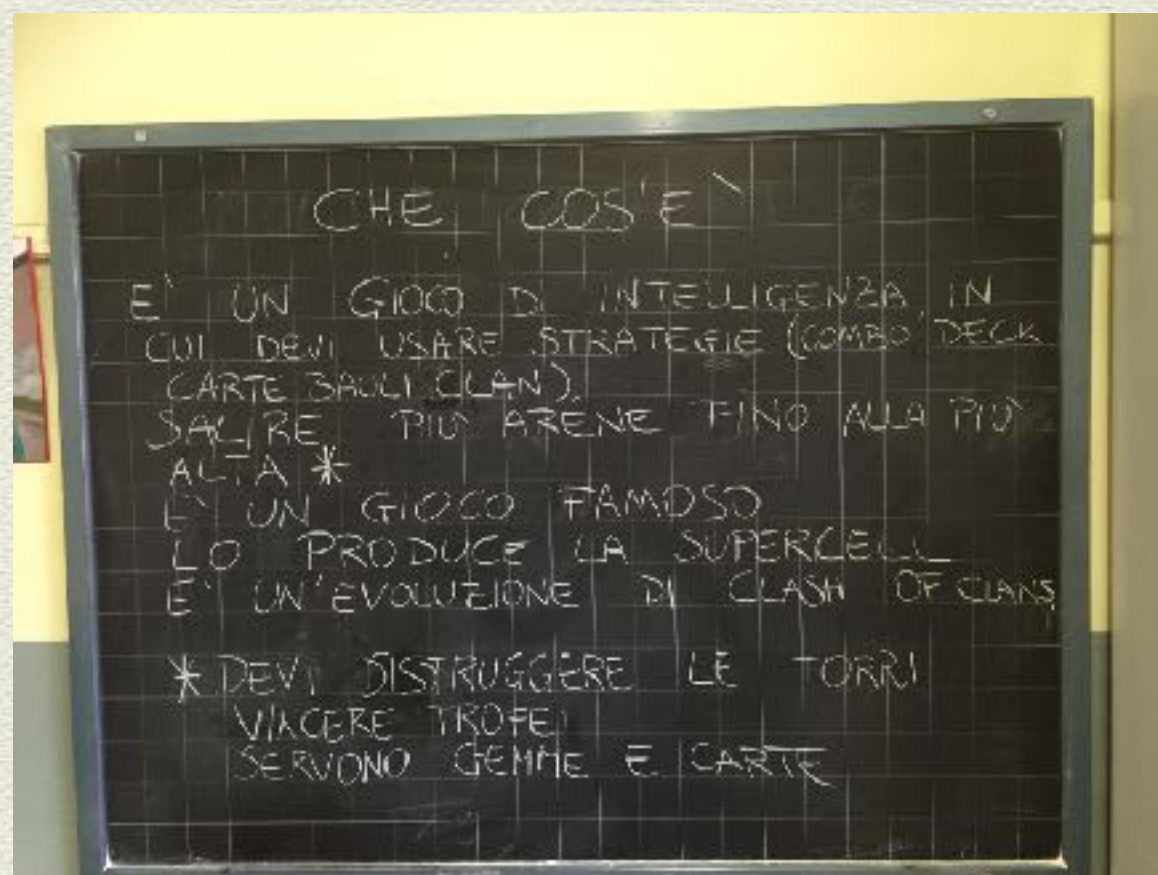 CHE COS'E`
E` UN GIOCO DI INTELLIGENZA IN
CUI DEVI USARE STRATEGIE (COMBO DECK
CARTE BAULI CLAN).
SALIRE PIU` ARENE FINO ALLA PIU`
ALTA *
E` UN GIOCO FAMOSO
LO PRODUCE LA SUPERCELL
E` UN'EVOLUZIONE DI CLASH OF CLANS
* DEVI DISTRUGGERE LE TORRI
VINCERE TROFEI
SERVONO GEMME E CARTE